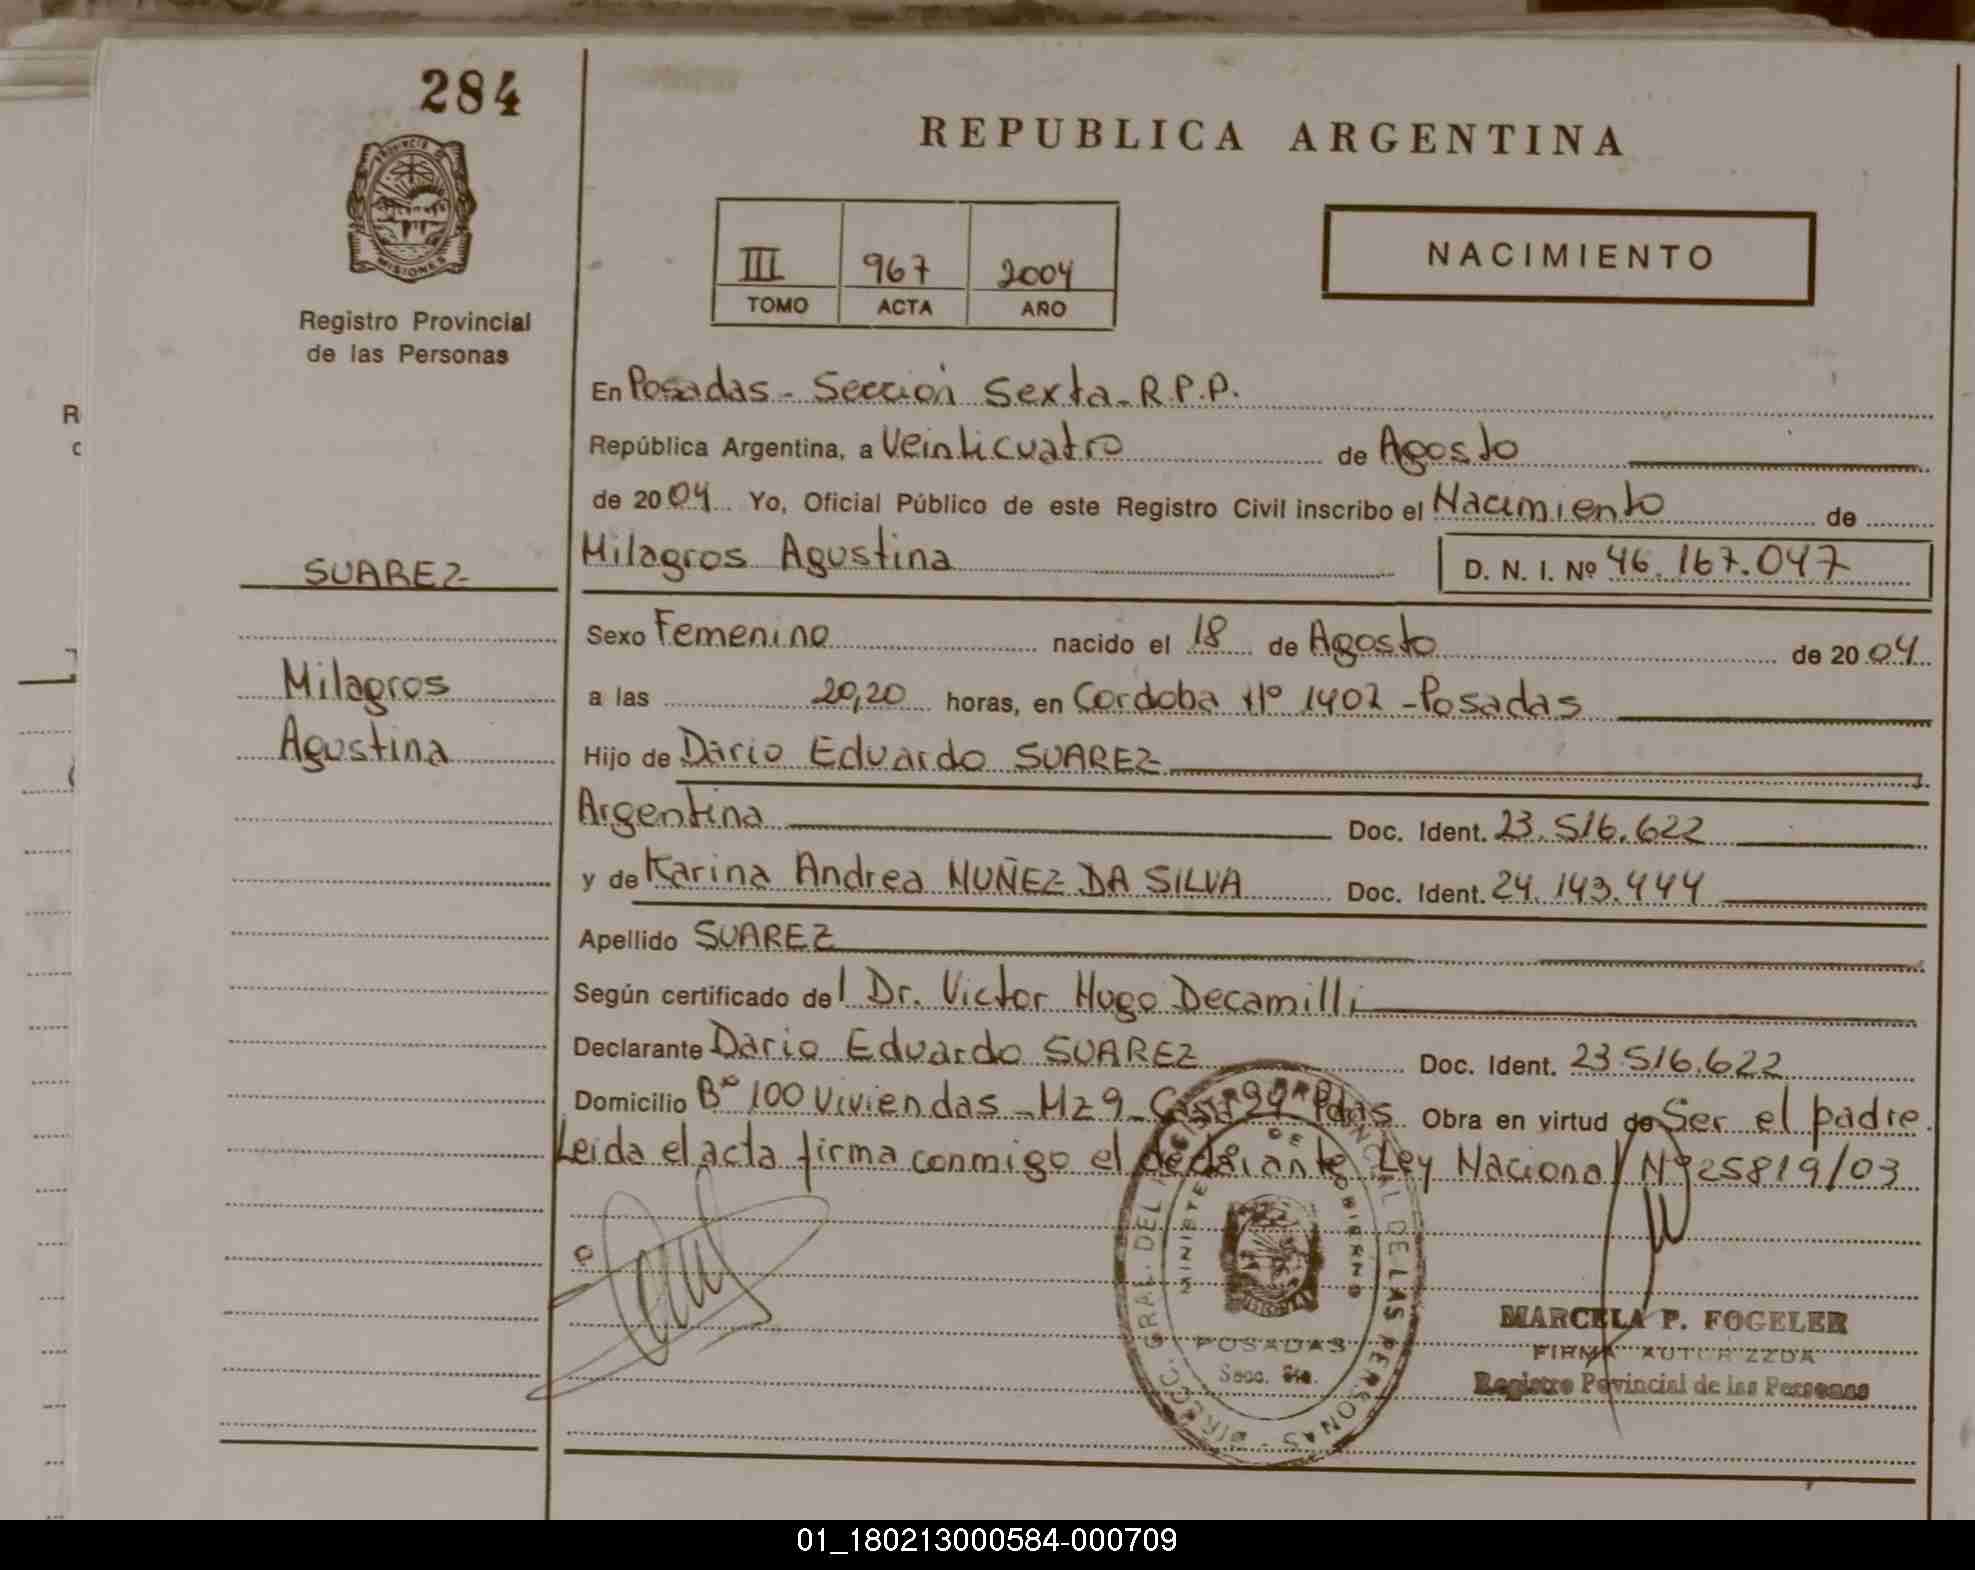 284
REPUBLICA ARGENTINA
PROVINCIA DE
MISIONES
Registro Provincial
de las Personas
III 967 2004
TOMO ACTA AÑO
NACIMIENTO
En Posadas - Sección Sexta - R.P.P.
República Argentina, a Veinticuatro de Agosto
de 2004 Yo, Oficial Público de este Registro Civil inscribo el Nacimiento de
Milagros Agustina D. N. I. Nº 46.167.047
SUAREZ
Milagros
Agustina
Sexo Femenino nacido el 18 de Agosto de 2004
a las 20,20 horas, en Cordoba Nº 1402 - Posadas
Hijo de Dario Eduardo SUAREZ
Argentina Doc. Ident. 23.516.622
y de Karina Andrea NUÑEZ DA SILVA Doc. Ident. 24.143.444
Apellido SUAREZ
Según certificado del Dr. Victor Hugo Decamilli
Declarante Dario Eduardo SUAREZ Doc. Ident. 23.516.622
Domicilio Bº 100 Viviendas - Mz 9 - Pdas Obra en virtud de Ser el padre
Leida el acta firma conmigo el declarante Ley Nacional Nº 25819/03
DIRECC. GRAL. DEL REGISTRO PROVINCIAL DE LAS PERSONAS
MINISTERIO DE GOBIERNO
POSADAS
Secc. 6ta.
MARCELA P. FOGELER
FIRMA AUTORIZZDA
Registro Povincial de las Personas
01_180213000584-000709